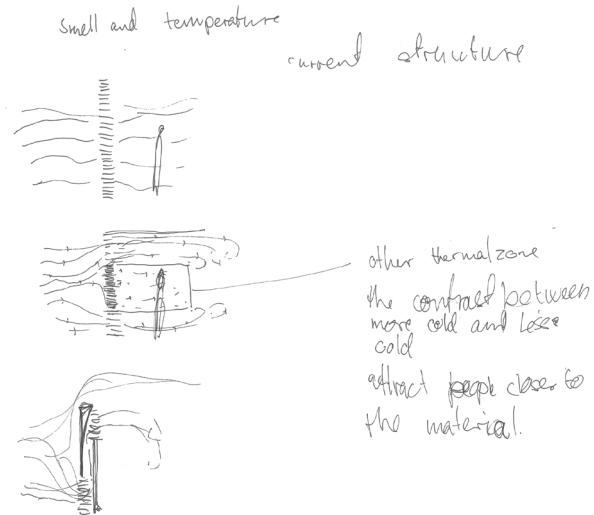 smell and temperature
current structure
other thermalzone
the contract between
more cold and less
cold
attract people closer to
the material.